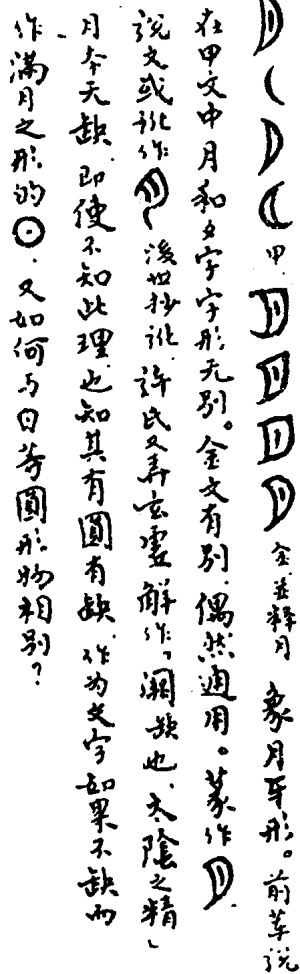 甲 金 並釋月 象月牙形。前輩說
在甲文中月和夕字字形无别。金文有别，偶然通用。篆作
說文或訛作 後世抄訛，許氏又弄玄虛解作「闕缺也，太陰之精」
月本无缺，即使不知此理，也知其有圓有缺，作为文字如果不缺而
作满月之形的⊙，又如何与日等圓形物相别？